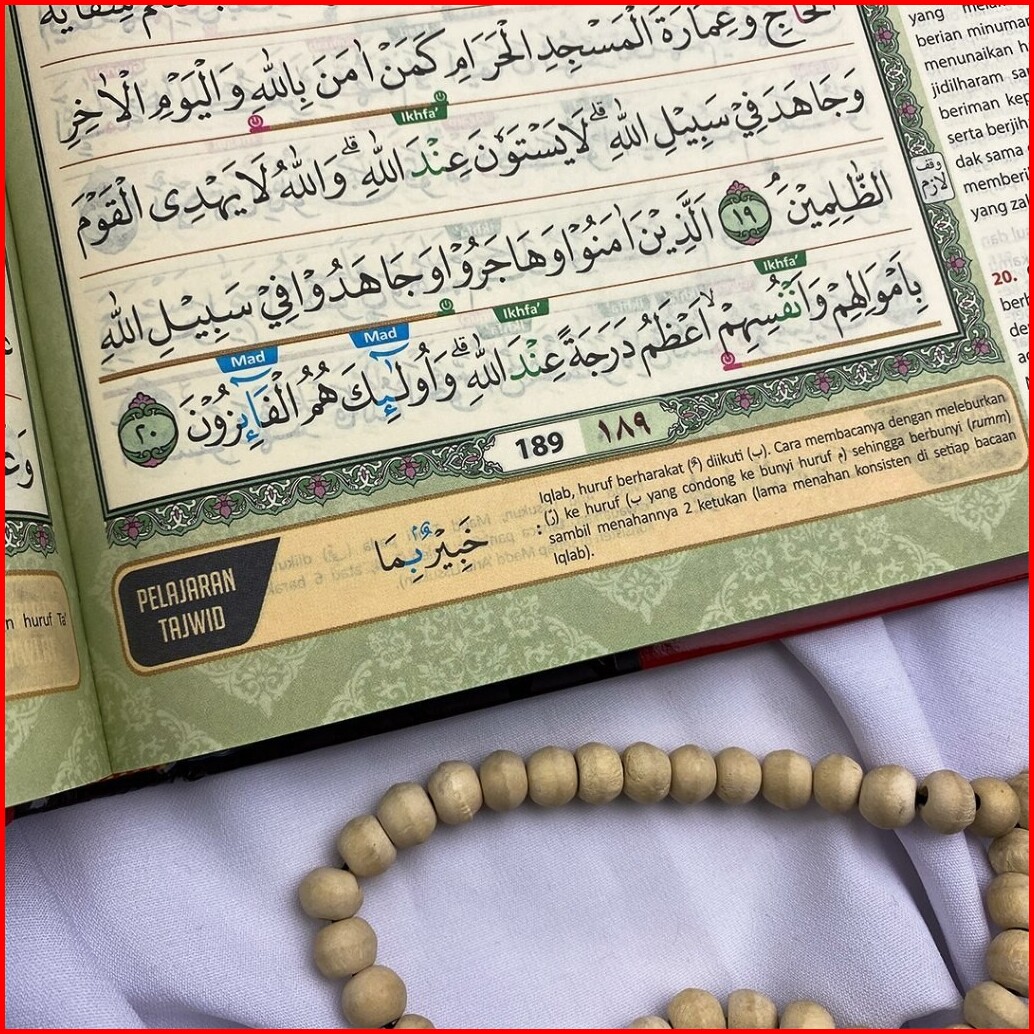 الْحَاجِّ وَعِمَارَةَ الْمَسْجِدِ الْحَرَامِ كَمَنْ اٰمَنَ بِاللّٰهِ وَالْيَوْمِ الْاٰخِرِ
Ikhfa'
وَجَاهَدَ فِيْ سَبِيْلِ اللّٰهِ ۗ لَا يَسْتَوٗنَ عِنْدَ اللّٰهِ ۗ وَاللّٰهُ لَا يَهْدِى الْقَوْمَ
الظّٰلِمِيْنَ ۘ ١٩ اَلَّذِيْنَ اٰمَنُوْا وَهَاجَرُوْا وَجَاهَدُوْا فِيْ سَبِيْلِ اللّٰهِ
Ikhfa' Ikhfa' Mad Mad
بِاَمْوَالِهِمْ وَاَنْفُسِهِمْۙ اَعْظَمُ دَرَجَةً عِنْدَ اللّٰهِ ۗ وَاُولٰۤىِٕكَ هُمُ الْفَاۤىِٕزُوْنَ ٢٠
وقف
لازم
189 ١٨٩
PELAJARAN
TAJWID
خَبِيْرٌۢ بِمَا :
Iqlab, huruf berharakat (ـٌ) diikuti (ب). Cara membacanya dengan meleburkan
(ن) ke huruf (ب yang condong ke bunyi huruf م) sehingga berbunyi (rumm)
sambil menahannya 2 ketukan (lama menahan konsisten di setiap bacaan
Iqlab).
yang
berian minuman
menunaikan h
jidilharam sa
beriman kep
serta berjih
dak sama
memberi
yang zal
20.
berh
n huruf Ta'